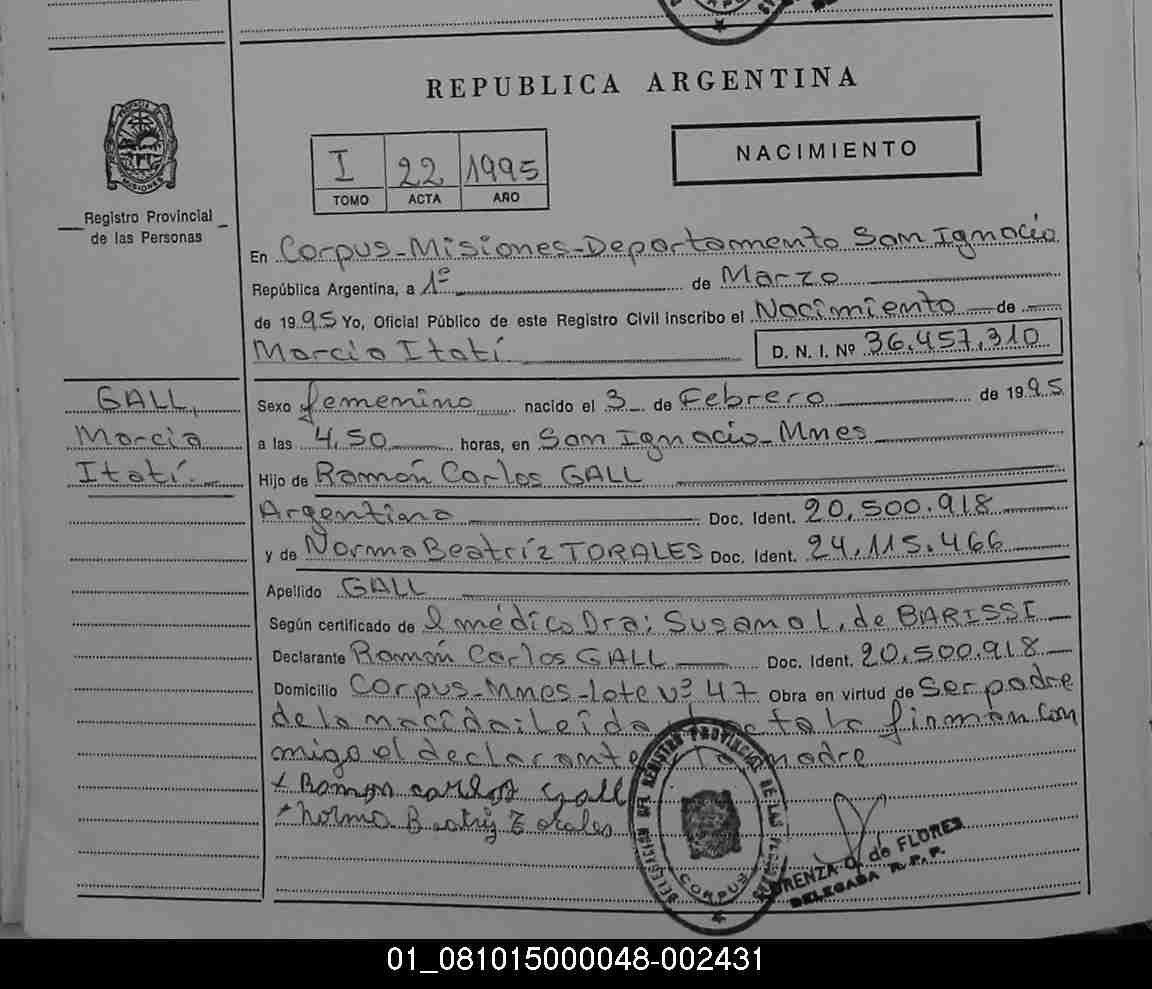 REPUBLICA ARGENTINA
PROVINCIA DE MISIONES
Registro Provincial
de las Personas
I 22 1995
TOMO ACTA AÑO
NACIMIENTO
En Corpus-Misiones-Departamento San Ignacio
República Argentina, a 1º de Marzo
de 1995 Yo, Oficial Público de este Registro Civil inscribo el Nacimiento de
Marcia Itatí D. N. I. Nº 36.457.310
GALL,
Marcia
Itatí.
Sexo femenino nacido el 3 de Febrero de 1995
a las 4,50 horas, en San Ignacio-Mnes
Hijo de Ramón Carlos GALL
Argentino Doc. Ident. 20.500.918
y de Norma Beatríz TORALES Doc. Ident. 24.115.466
Apellido GALL
Según certificado de l médico Dra: Susana L. de BARISSI
Declarante Ramón Carlos GALL Doc. Ident. 20.500.918
Domicilio Corpus-Mnes-Lote Nº 47 Obra en virtud de Ser padre
de la nacida: Leída el acta la firman con
migo el declarante la madre
Ramon carlos Gall
Norma Beatriz Torales
DELEGACION DEL REGISTRO PROVINCIAL DE LAS PERSONAS
CORPUS
de FLORES
DELEGADA R. P. P.
01_081015000048-002431